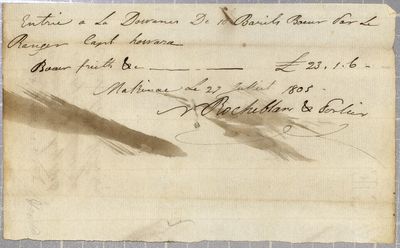 Entrie a La Douanes De 10 Barils Boeur Par Le
Ranger Capt howara
Boeur freits &c — — — £ 23.1.6 -
Makinac Le 27 Juillet 1805 -
Rocheblav & Porlier